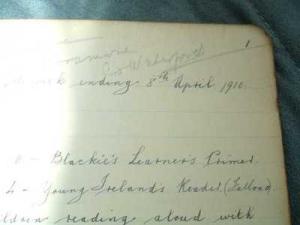 1
Co Waterford
week ending 8th April 1910.
6 - Blackie's Learner's Primer.
4 - Young Irelands Reader. (Fallons)
reading aloud with